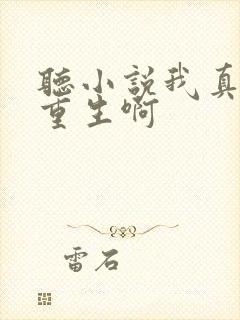 聽小説我真
重生啊
雷石